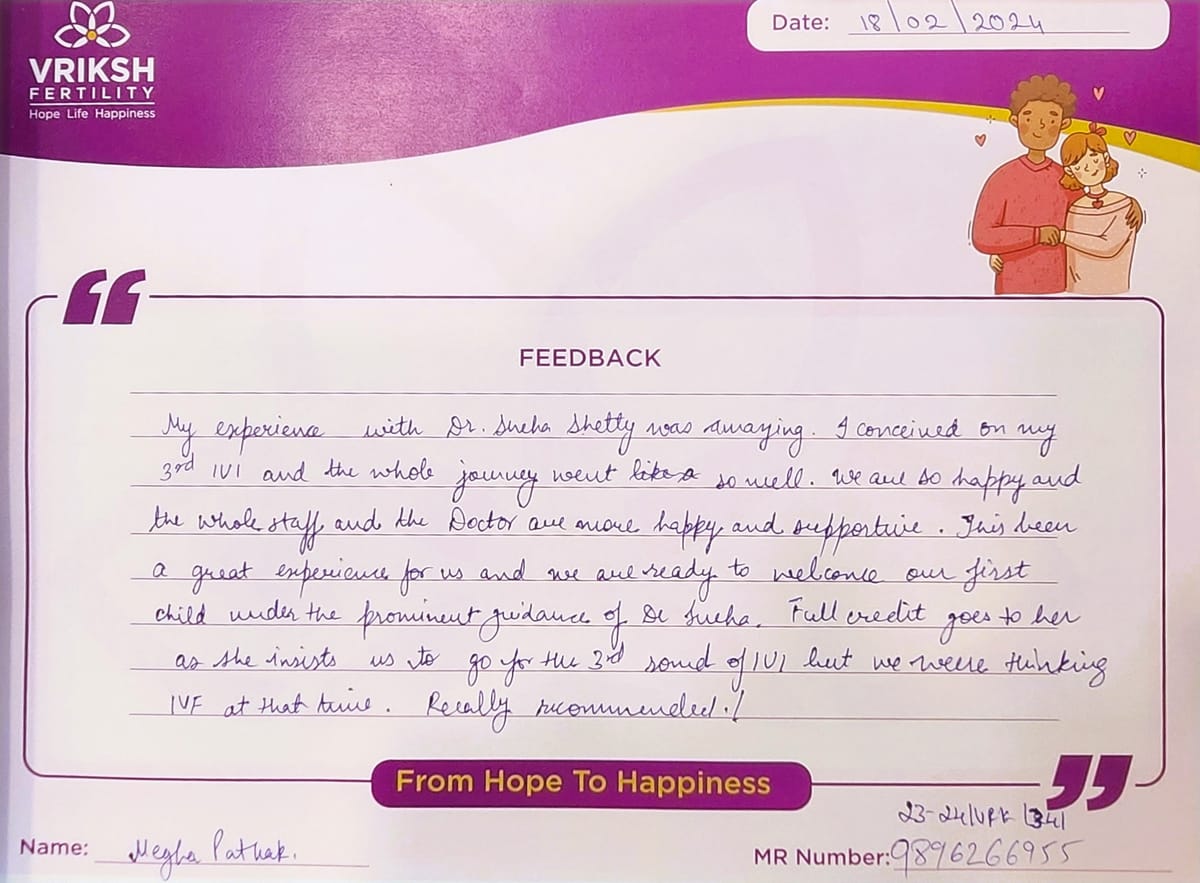 VRIKSH
FERTILITY
Hope Life Happiness
Date: 18/02/2024
FEEDBACK
My experience with Dr. Sneha Shetty was amazing. I conceived on my
3rd IUI and the whole journey went like a so well. We are so happy and
the whole staff and the Doctor are more happy and supportive. This been
a great experience for us and we are ready to welcome our first
child under the prominent guidance of Dr Sneha. Full credit goes to her
as she insists us to go for the 3rd round of IUI but we were thinking
IVF at that time. Really recommended.!
From Hope To Happiness
23-24/VRK/
Name: Megha Pathak.
MR Number: 9896266955